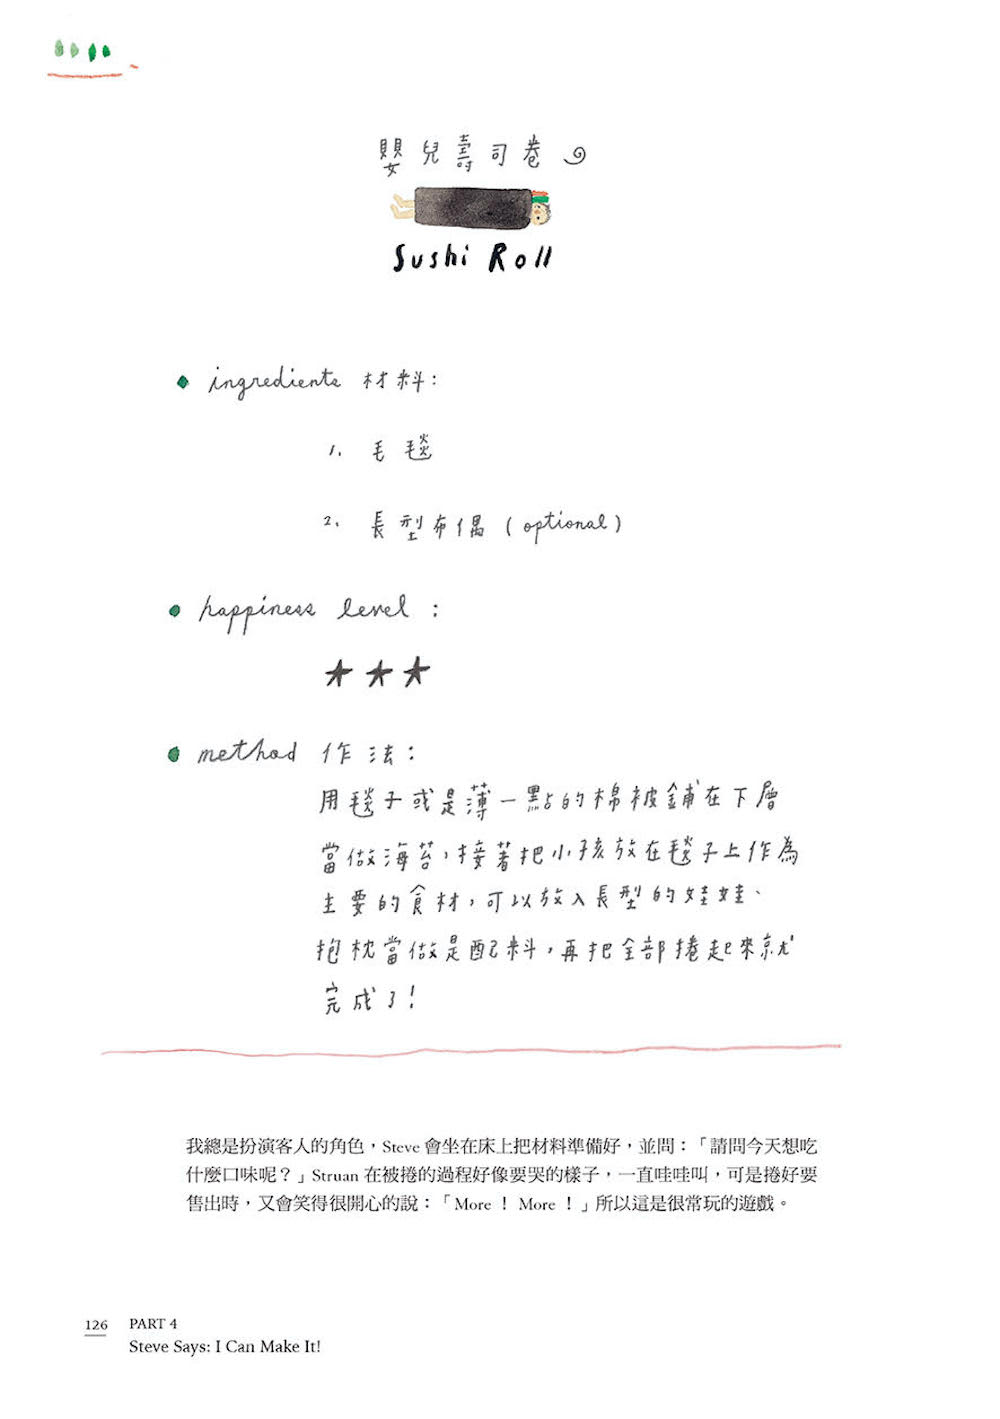 嬰兒壽司卷
Sushi Roll
ingredients 材料：
1. 毛毯
2. 長型布偶 (optional)
happiness level :
★★★
method 作法：
用毯子或是薄一點的棉被鋪在下層
當做海苔，接著把小孩放在毯子上作為
主要的食材，可以放入長型的娃娃、
抱枕當做是配料，再把全部捲起來就
完成了！
我總是扮演客人的角色，Steve 會坐在床上把材料準備好，並問：「請問今天想吃
什麼口味呢？」Struan 在被捲的過程好像要哭的樣子，一直哇哇叫，可是捲好要
售出時，又會笑得很開心的說：「More ！ More ！」所以這是很常玩的遊戲。
126 PART 4
Steve Says: I Can Make It!